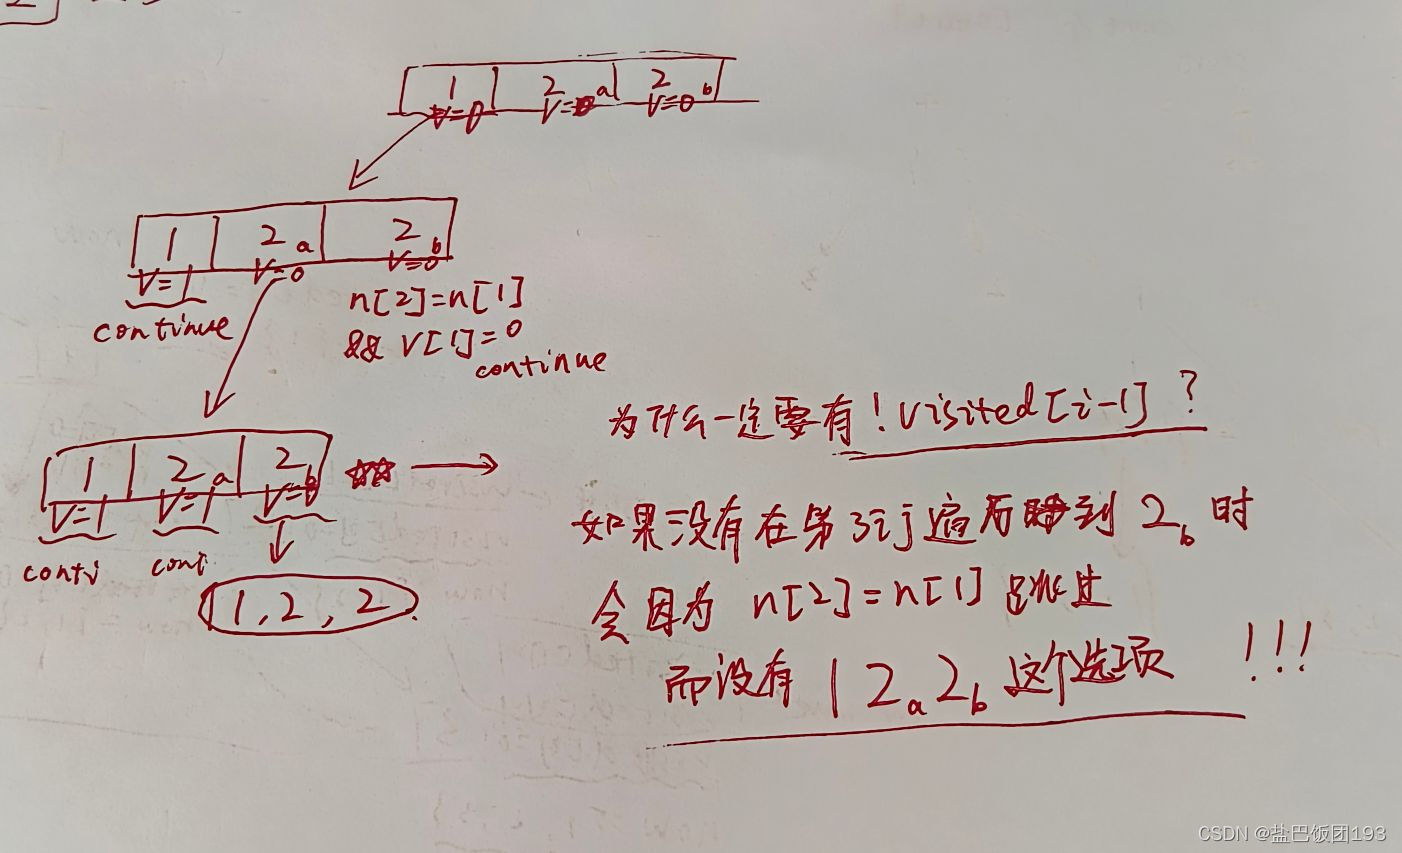 1 2 a 2 b
V=0 V=0 V=0
1 2 a 2 b
V=1 V=0 V=0
continue
n[2]=n[1]
&& V[1]=0
continue
1 2 a 2 b
V=1 V=1 V=0
conti cont
1, 2, 2
为什么一定要有!visited[i-1]?
如果没有在第3 遍 到 2b 时
会因为 n[2]=n[1] 跳过
而没有 1 2a 2b 这个选项 !!!
CSDN @盐巴饭团193